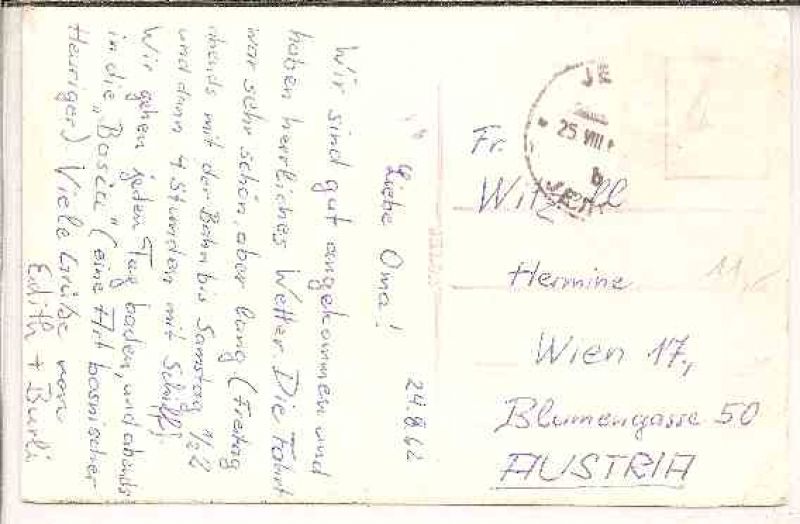 24.8.62
Liebe Oma!
Wir sind gut angekommen und
haben herrliches Wetter. Die Fahrt
war sehr schön, aber lang (Freitag
abends mit der Bahn bis Samstag 1/2 2
und dann 4 Stunden mit Schiff)
Wir gehen jeden Tag baden, und abends
in die „ (eine Art bosnischer
Heuriger) Viele Grüße von
Edith + Burli
Fr.
Hermine
Wien 17.,
Blumengasse 50
AUSTRIA
25 VIII
b
11,-